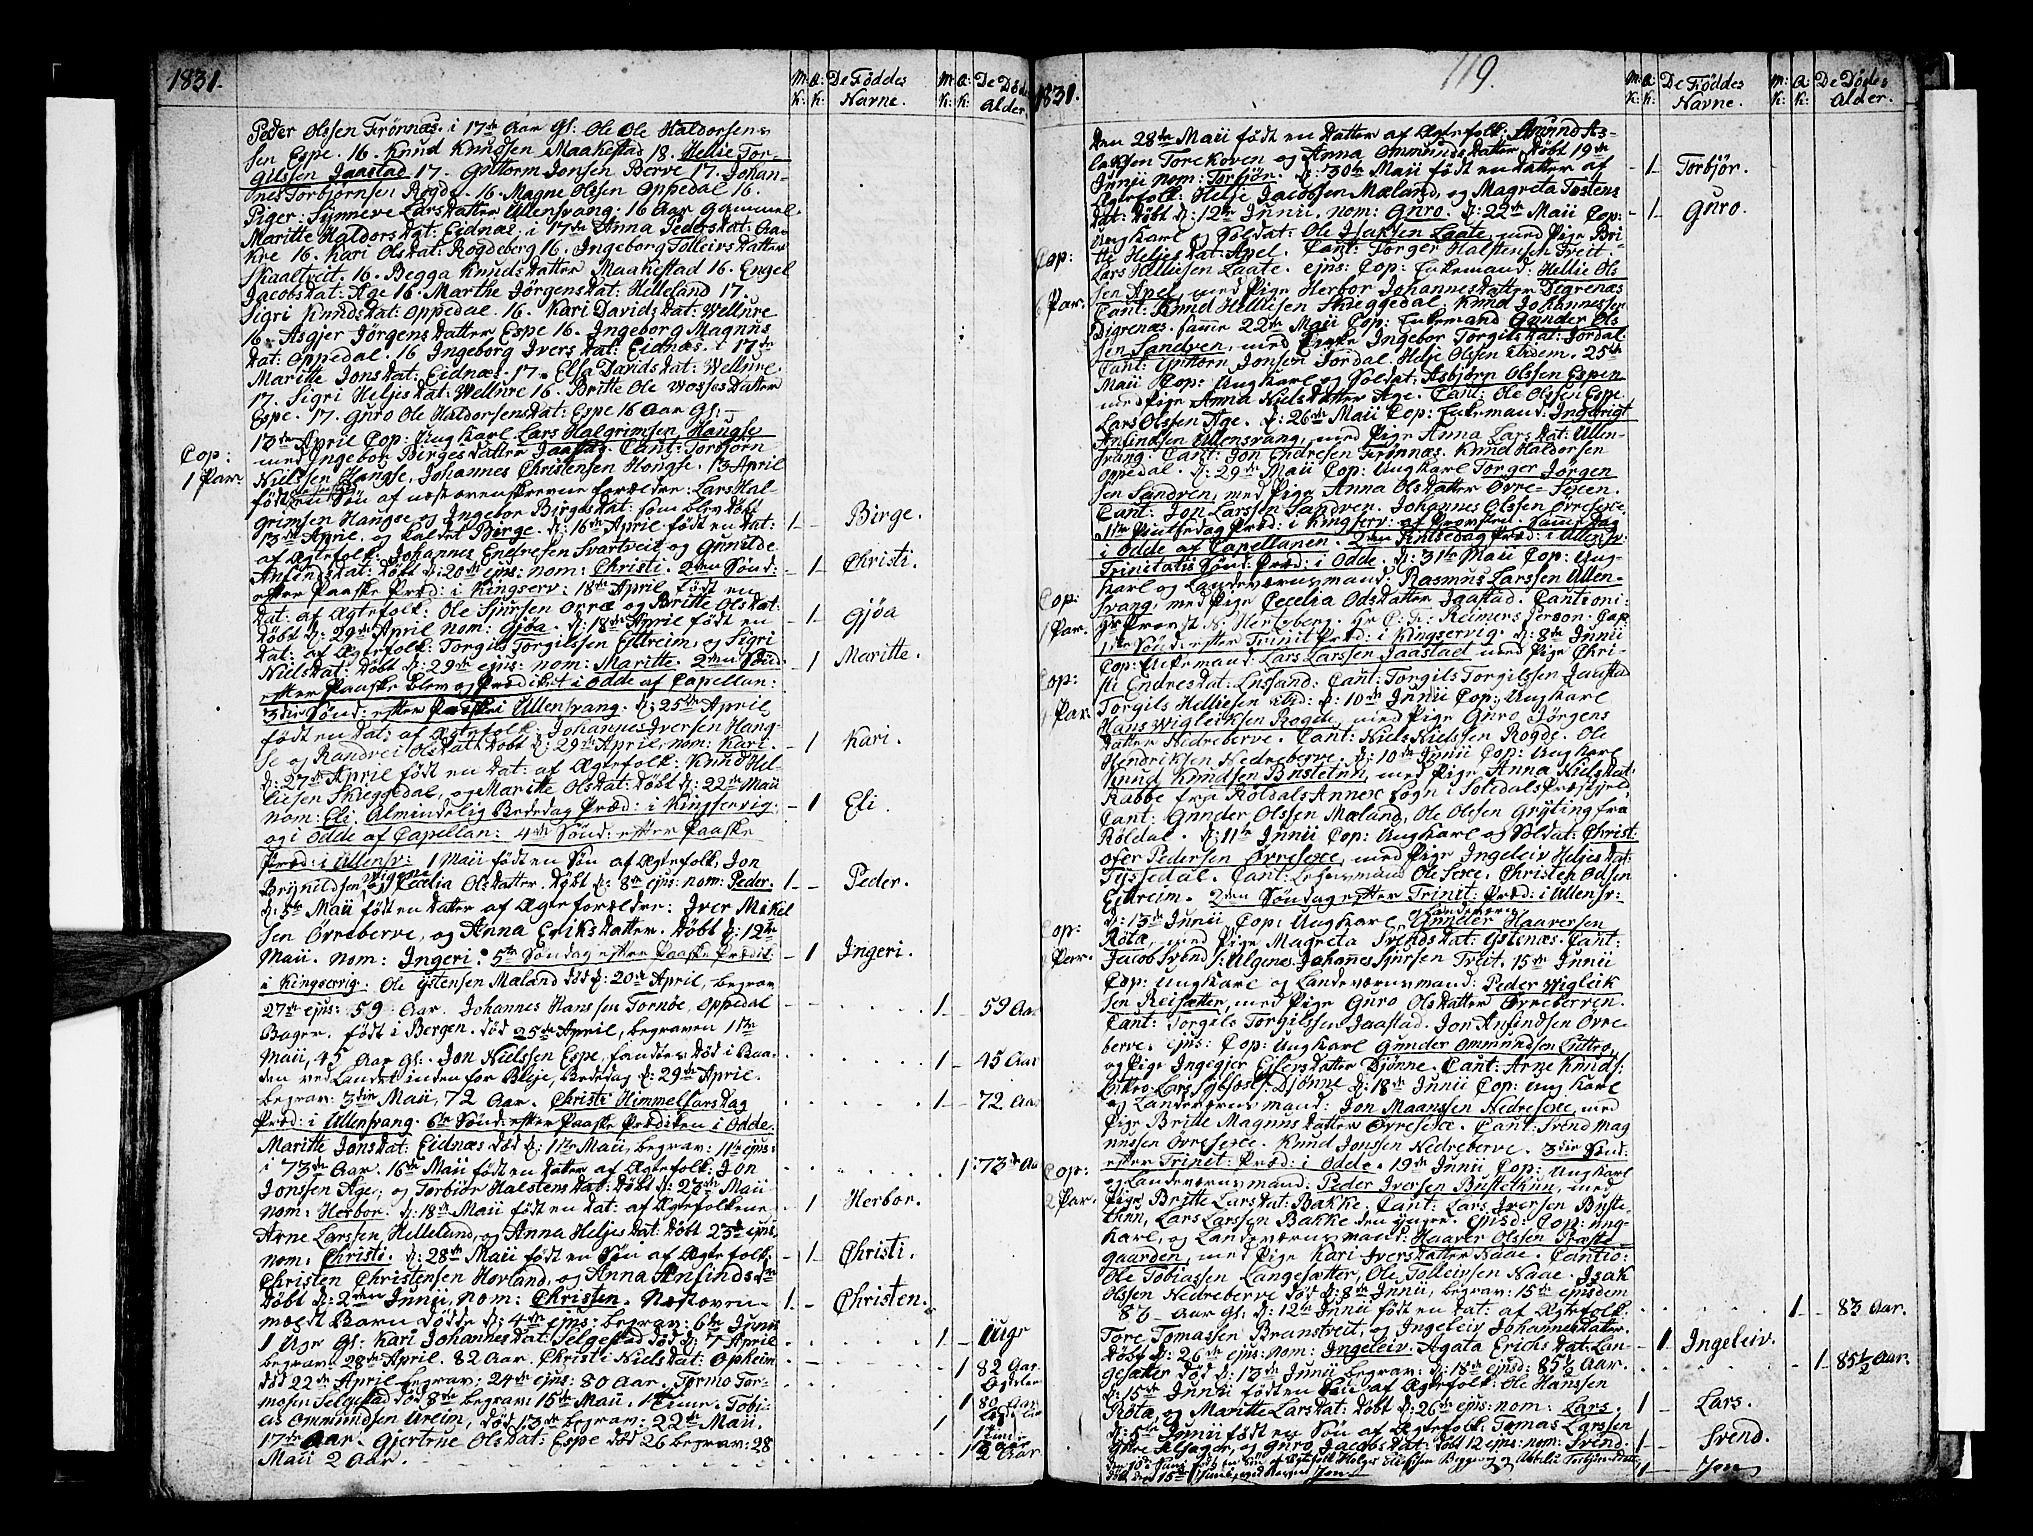 1831.
M: K:
Q: K:
De Föddes Navne.
M: K:
Q: K:
De Döde Alder.
Peder Olssen Frönnæs. i 17de Aar gl: Ole Ole Haldorsens
sen Espe. 16. Knud Knudsen Maakestad 18. Hellie Tor-
gilssen Jaastad 17. Guttorm Jonsen Berve 17. Johan-
nes Torbjörnsen Rogde. 16. Magne Olssen Oppedal 16.
Piger: Synneve Larsdatter Ullensvang: 16 Aar gammel.
Maritte Haldorsdat: Eidnæs. i 17de Anna Pedersdat: Aa-
kre 16. Kari Olsdat: Rogdeberg 16. Ingeborg Tolleivsdatter
Skaaltveit 16. Begga Knudsdatter Maakestad 16. Engel
Jacobsdat: Age 16. Marthe Jörgensdat: Helleland 17
Sigri Knudsdat: Oppedal. 16. Kari Davidsdat: Wellure
16. Asgjer Jörgensdatter Espe 16. Ingeborg Magnus
dat: Oppedal. 16 Ingeborg Iversdat: Eidnæs. i 17de
Maritte Jonsdat: Eidnæs. 17. Elsa Davidsdat: Wellure
17. Sigri Heljesdat: Wellure 16. Britte Ole Wossesdatter
Espe. 17. Guro Ole Haldorsensdat: Espe 16 Aar gl:
Cop: 1 Par
13de April Cop: Ungkarl Lars Halgrimsen Haugse
med Ingebor Birgesdatter Jaastad. Cant: Torbjörn
Nielssen Haugse, Johannes Christensen Hougse. 13 April
födt en Sön af næstovenskrevne forældre: Lars Hal-
grimsen Haugse og Ingebor Birgesdat: som blev döbt
13de April, og kaldet Birge. d: 16de April födt en dat:
af Ægtefolk: Johannes Endresen Svartveit og Gunilde
Anfindsdat: döbt d: 20de ejus: nom: Christi. 2den Sönd:
efter Paaske Præd: i Kingserv: 18de April födt en
dat: af Ægtefolk: Ole Sjursen Orræ og Britte Olsdat:
döbt d: 29de April nom: Gjöa. d: 18de April födt en
dat: af Ægtefolk: Torgils Torgilssen Eittreim, og Sigri
Nielsdat: döbt d: 29de ejus: nom: Maritte. 2den Sönd:
efter Paaske blev og Prædiket i Odde af Capellan:
3die Sönd: efter Paaske i Ullensvang. d: 25de April
födt en dat: af Ægtefolk: Johannes Iversen Haug-
se og Randvei Olsdat: döbt d: 29de April, nom: Kari.
d: 27de April födt en dat: af Ægtefolk: Knud Hel-
liesen Skieggedal, og Maritte Olsdat: döbt d: 22de Maii
nom: Eli. Almindelig Bededag Præd: i Kingservig:
og i Odde af Capellan: 4de Sönd: efter Paaske
Præd: i Ullensv: 1 Maii födt en Sön af Ægtefolk, Jon
Brynildsen og Cecelia Olsdatter. döbt d: 8de ejus: nom: Peder.
d: 5te Maii födt en datter af Ægteforældre: Iver Mikel
sen Örreberve, og Anna Eriksdatter. döbt d: 12te
Maii. nom: Ingeri. 5te Söndag efter Paaske Prædik:
i Kingservig: Ole Östensen Mæland död d: 20de April, begrav
27de ejus: 59 Aar. Johannes Hanssen Tornbe, Oppedal
Bager. födt i Bergen. död 25de April, begraven 1ste
Maii, 45 Aar gl. Jon Nielssen Espe, fandtes död i Baa-
den ved Landet inden for Bleje, Bededag d: 29de April.
begrav: 3die Maii, 72 Aar. Christi Himmelfarsdag
Præd: i Ullensvang. 6te Sönd: efter Paaske Prædiken i Odde.
Maritte Jonsdat: Eidnæs död d: 1te Maii, begrav: 11te ejus:
i 73de Aar. 16de Maii födt en datter af Ægtefolk: Jon
Jonssen Age, og Torbiör Halstensdat: döbt d: 22de Maii
nom: Herbor. d: 18de Maii födt en dat: af Ægtefolkene
Arne Larssen Helleland, og Anna Heljesdat: döbt 23de ejus,
nom: Christi. d: 28de Maii födt en Sön af Ægtefolk:
Christen Christensen Hovland, og Anna Anfindsd:
döbt d: 2den Junii, nom: Christen. Næstoven-
meldt Barn döde d: 4de ejus: begrav: 6te Junii
1 Uge gl: Kari Johannesdat: Selgestad död d: 7 April
begrav: 28de April. 82 Aar. Christi Nielsdat: Opheim
död 22de April begrav: 24de ejus: 80 Aar. Tormo Tor-
mosen Selgestad död 8de begrav: 15de Maii, 1 time. Tobi-
as Ommundsen Areim, död 13de begrav: 22de Maii.
17de Aar. Gjertrue Olsdat: Espe död 26 begrav: 28
Maii 2 Aar.
1 Birge.
1 Christi.
1 Gjöa
1 Maritte.
1 Kari.
1 Eli.
1 Peder.
1 Ingeri.
1 59 Aar
1 45 Aar
1 72. Aar
1 73de Aa
1 Herbor.
1 Christi.
1 Christen.
1 1 Uge
1 82 Aar.
1 80 Aar.
1 2 Aar
1831.
119.
M: K:
Q: K:
De Föddes Navne.
M: K:
Q: K:
De Dödes Alder.
den 28de Maii födt en datter af Ægtefolk: Amund As-
laksen Torekoven og Anna Ommundsdatter döbt 19de
Junii nom: Torbjör. d: 30te Maii födt en datter af
Ægtefolk: Helje Jacobssen Mæland, og Magreta Tostens
dat: döbt d: 12te Junii, nom: Guro. d: 22de Maii Cop:
Ungkarl og Soldat: Ole Isaksen Laate, med Pige Bri-
tte Heljesdat: Apel. Cant: Torger Halstensen Treit.
Lars Helliesen Laate. ejus: Cop: Enkemand: Hellie Ols
sen Apel, med Pige Herbor Johannesdatter Digrenæs
Cant: Knud Helliesen Skieggedal, Knud Johannessen
Digrenæs. samme 22de Maii Cop: Enkemand Gunder Ols
sen Sandven, med Enke Ingebor Torgilsdat: Jordal.
Cant: Guttorm Jonsen Jordal. Helje Olssen ibidem. 25de
Maii Cop: Ungkarl og Soldat: Asbjörn Olssen Espen
med Pige Anna Nielsdatter Age. Cant: Ole Olssen Espe.
Lars Olssen Age. d: 26de Maii Cop: Enkemand: Ingebrigt
Anfindsen Ullensvang, med Pige Anna Larsdat: Ullen-
svang. Cant: Jon Endresen Frönnæs. Knud Haldorsen
Oppedal. d: 29de Maii Cop: Ungkarl Torger Jörgen
sen Sandven, med Pige Anna Olsdatter Övre-Sexen.
Cant: Jon Larssen Sandven. Johannes Olssen Övresexe.
1ste Pintsedag Præd: i Kingserv: af Provsten. samme dag
i Odde af Capellanen. 2den Pintsedag Præd: i Ullensv:
Trinitatis Sönd: Præd: i Odde. d: 31te Maii Cop: Ung-
karl og Landeværnsmand: Rasmus Larssen Ullen-
svang, med Pige Cecelia Odsdatter Jaastad. Cantioni:
Hr Provst N: Hertzberg. Hr C: F: Reimers Person: Cap:
1ste Sönd: efter Trinit: Præd: i Kingservig. d: 8de Junii
Cop: Enkemand: Lars Larssen Jaastad med Pige Chri-
sti Endresdat: Lusand: Cant: Torgils Torgilssen Jaastad
Torgils Helliesen ibid: d: 10de Junii Cop: Ungkarl
Hans Wigleiksen Rogde, med Pige Guro Jörgens
datter Nedreberve. Cant: Niels Nielssen Rogde. Ole
Hendriksen Nedreberve. d: 10de Junii Cop: Ungkarl
Knud Knudsen Bustetun, med Pige Anna Nielsdat:
Rabbe fra Röldals Annex Sogn i Suledals Præstgield.
Cant: Gunder Olssen Mæland, Ole Olssen Gryting fra
Röldal. d: 11te Junii Cop: Ungkarl og Soldat: Christ-
ofer Pedersen Övresexe, med Pige Ingeleiv Heljesdat:
Tyssedal. Cant: Lensmand Ole Sexe. Christen Odsen
Eittreim. 2den Söndag efter Trinit: Præd: i Ullensv:
d: 13de Junii Cop: Ungkarl og Landeværn: Gunder Haaversen
Röte, med Pige Magreta Svendsdat: Ystenæs. Cant:
Jacob Svends: Ulgenes. Johannes Sjursen Treit. 15de Junii
Cop: Ungkarl og Landeværnsmand: Peder Wigleik
sen Reisæter, med Pige Guro Olsdatter Örreberven.
Cant: Torgils Torgilssen Jaastad. Jon Anfindsen Övre-
berve. ejus: Cop: Ungkarl Gunder Ommundsen Littro,
og Pige Ingegjer Eilersdatter Djönne. Cant: Arne Knuds:
Djönne d: 18de Junii Cop: Ungkarl
og Landeværnsmand: Jon Maanssen Nedresexe, med
Pige Britte Magnusdatter Övresexe. Cant: Svend Mag
nussen Övresexe. Knud Jonssen Nedreberve. 3die Sönd:
efter Trinit: Præd: i Odde. 19de Junii, Cop: Ungkarl
og Landeværnsmand: Peder Iversen Bustetun, med
Pige Britte Larsdat: Bakke. Cant: Lars Iversen Buste-
thun, Lars Larssen Bakke den yngre. ejusd: Cop: Ung-
karl, og Landeværnsmand: Haaver Olssen Præste-
gaarden, med Pige Kari Iversdatter Naae. Cantio:
Ole Tobiassen Langesætter, Ole Tolleivsen Naae. Isak
Olssen Nedreberve död d: 8de Junii, begrav: 15de ejusdem
83 Aar gl: d: 12te Junii födt en dat: af Ægtefolk:
Tore Tomassen Branstveit, og Ingeleiv Johannesdatter.
döbt d: 26de ejus: nom: Ingeleiv. Agata Erichsdat: Lan-
gesæter död d: 13de Junii begrav: d: 18de ejusd: 85½ Aar.
d: 15de Junii födt en Sön af Ægtefolk: Ole Hanssen
Röte, og Maritte Larsdat: döbt d: 26de ejus: nom: Lars.
d: 5te Junii födt en Sön af Ægtefolk: Tomas Larssen
og Guro Jacobsdat: döbt 12 ejus: nom: Svend.
Cop:
Par.
Cop:
1 Par.
Cop:
1 Par.
Cop:
Par.
Cop:
2 Par.
1 Torbjör.
1 Guro.
1 83 Aar.
1 Ingeleiv.
1 85½ Aar.
1 Lars.
1 Svend.
1 Jon